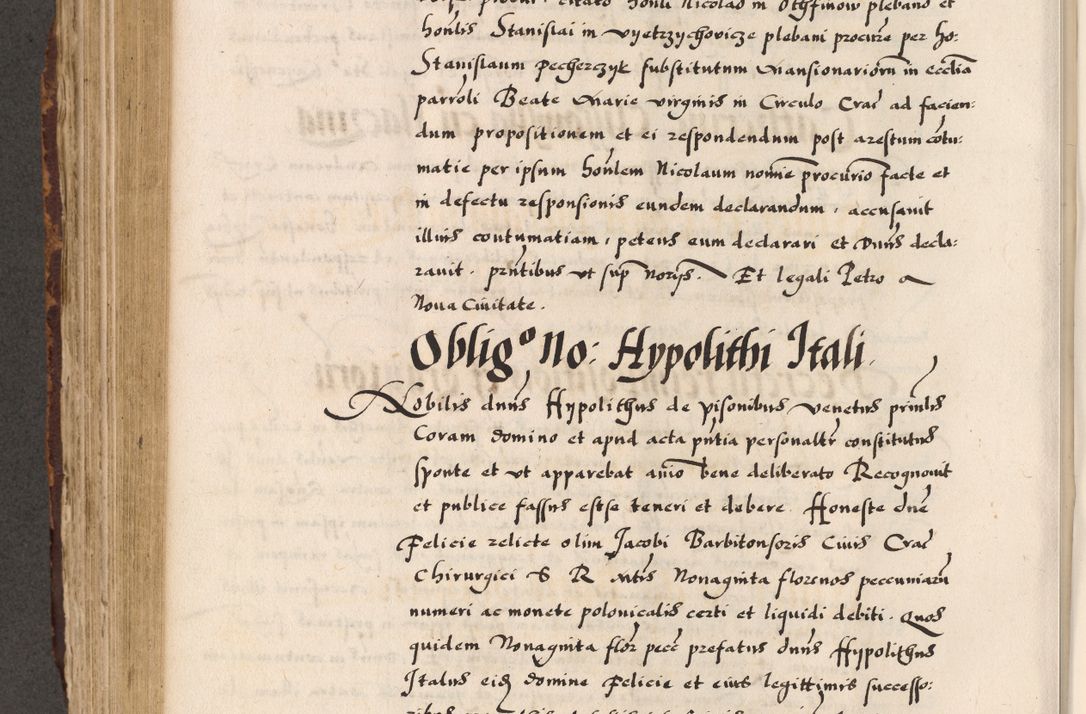 citato honli Nicolao in Othfinow plebano et
honlis Stanislai in vyetrzychovicze plebani procure per ho:
Stanislaum pecherczyk substitutum mansionariorum in ecclia
parroli Beate Marie virginis in Circulo Crac ad facien:
dum propositionem et ei respondendum post arestum cotu:
matie per ipsum honlem Nicolaum nomie procurio facte et
in defectu responsionis eundem declarandum, accusavit
illius contumatiam, petens eum declarari et Duns decla:
ravit. pntibus ut sup norijs. Et legali Petro a
Nova Civitate.
Oblig° No: Hypolithi Itali.
Nobilis duns Hypolithus de pisonibus venetus primlis
Coram domino et apud acta pntia personaltr constitutus
sponte et ut apparebat anio bene deliberato Recognovit
et publice fassus estse teneri et debere Honeste dne
Felicie relicte olim Jacobi Barbitonsoris Civis Crac
Chirurgici S R Mtis Nonaginta florenos peccuniaru
numeri ac monete polonicalis certi et liquidi debiti. Quos
quidem Nonaginta flor pecc prefatus duns Hypolithus
Italus eid domine Felicie et eius legittimis successo: